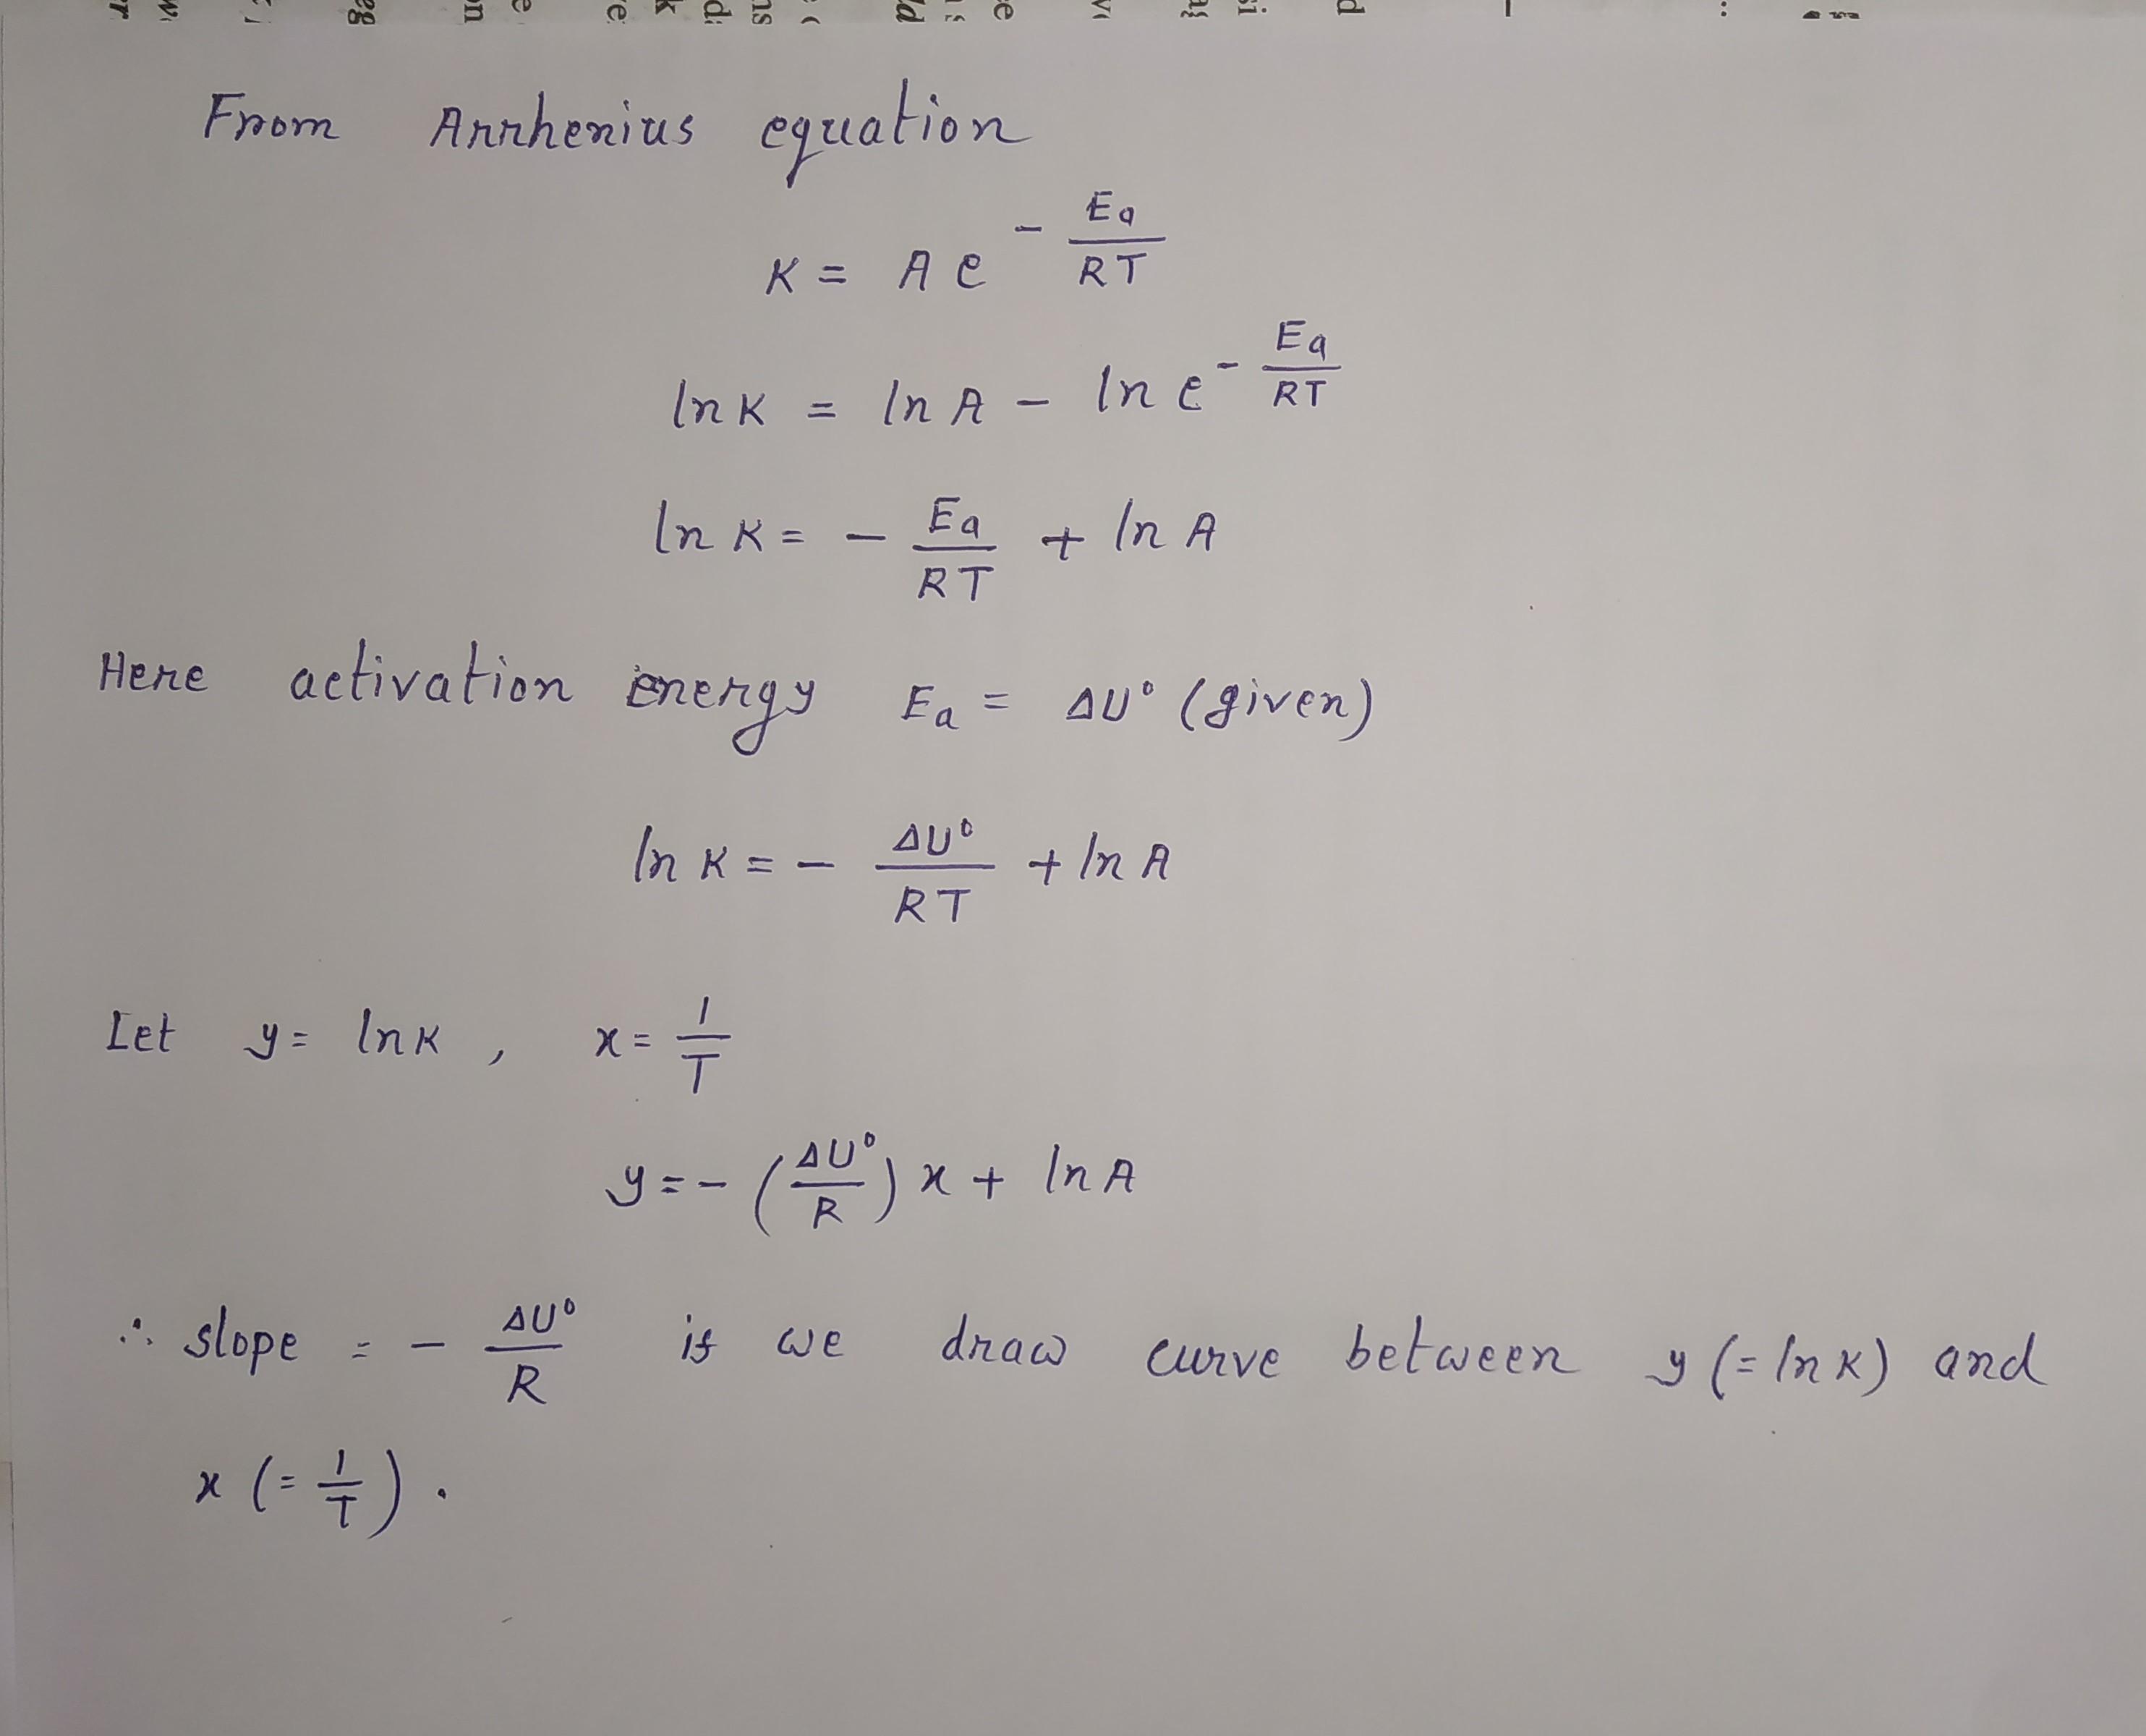 From Arrhenius equation
K = A e^{- Ea/RT}
ln K = ln A - ln e^{- Ea/RT}
ln K = - Ea/RT + ln A
Here activation energy Ea = ΔU° (given)
ln K = - ΔU°/RT + ln A
Let y = ln K , x = 1/T
y = - (ΔU°/R) x + ln A
∴ slope = - ΔU°/R if we draw curve between y (= ln K) and
x (= 1/T) .